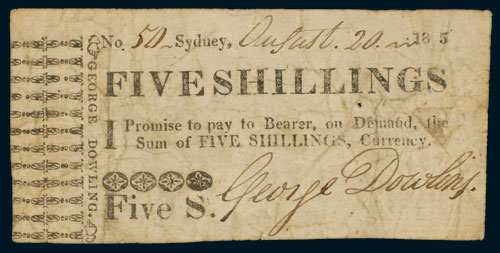 No. 50 Sydney, August. 20. 18 5
GEORGE DOWLING.
FIVE SHILLINGS
I Promise to pay to Bearer, on Demand, the
Sum of FIVE SHILLINGS, Currency.
George Dowling.
Five S.